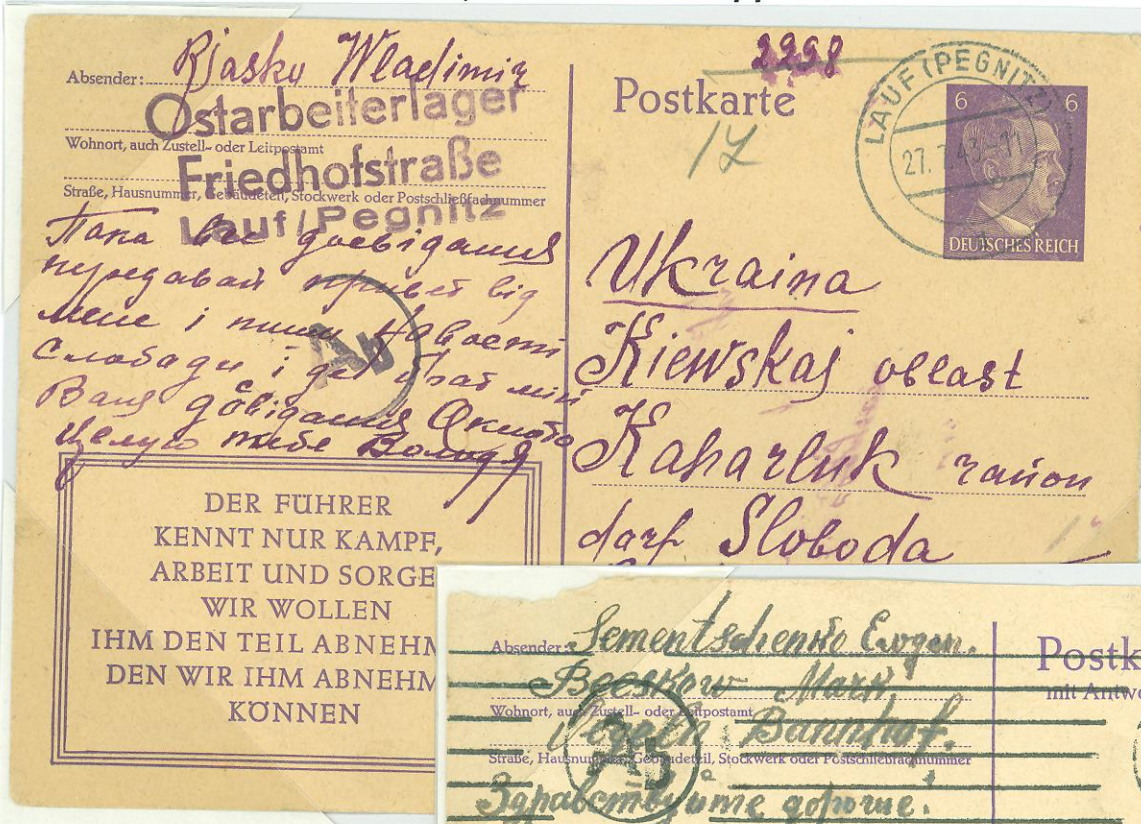 Rjasko Wladimir
Absender:
Ostarbeiterlager
Wohnort, auch Zustell- oder Leitpostamt
Friedhofstraße
Straße, Hausnummer, Gebäudeteil, Stockwerk oder Postschließfachnummer
Lauf/Pegnitz
досвіданья
передавай привет від
мене і пиши Новости
Слободи і де брат мій
Ваня досвіданья
Целую тебе Володя
Ab
DER FÜHRER
KENNT NUR KAMPF,
ARBEIT UND SORGE
WIR WOLLEN
IHM DEN TEIL ABNEHM
DEN WIR IHM ABNEHM
KÖNNEN
2298
Postkarte
LAUF (PEGNITZ)
6 6
DEUTSCHES REICH
Ukraina
Kiewskaj oblast
Kaharluk район
dorf Sloboda
Absender: Sementschenko Ewgen.
Beeskow Mark
Wohnort, auch Zustell- oder Leitpostamt
Bannhof.
Straße, Hausnummer, Gebäudeteil, Stockwerk oder Postschließfachnummer
Ab
Здравствуйте дорогие.
Postk
mit Antwo